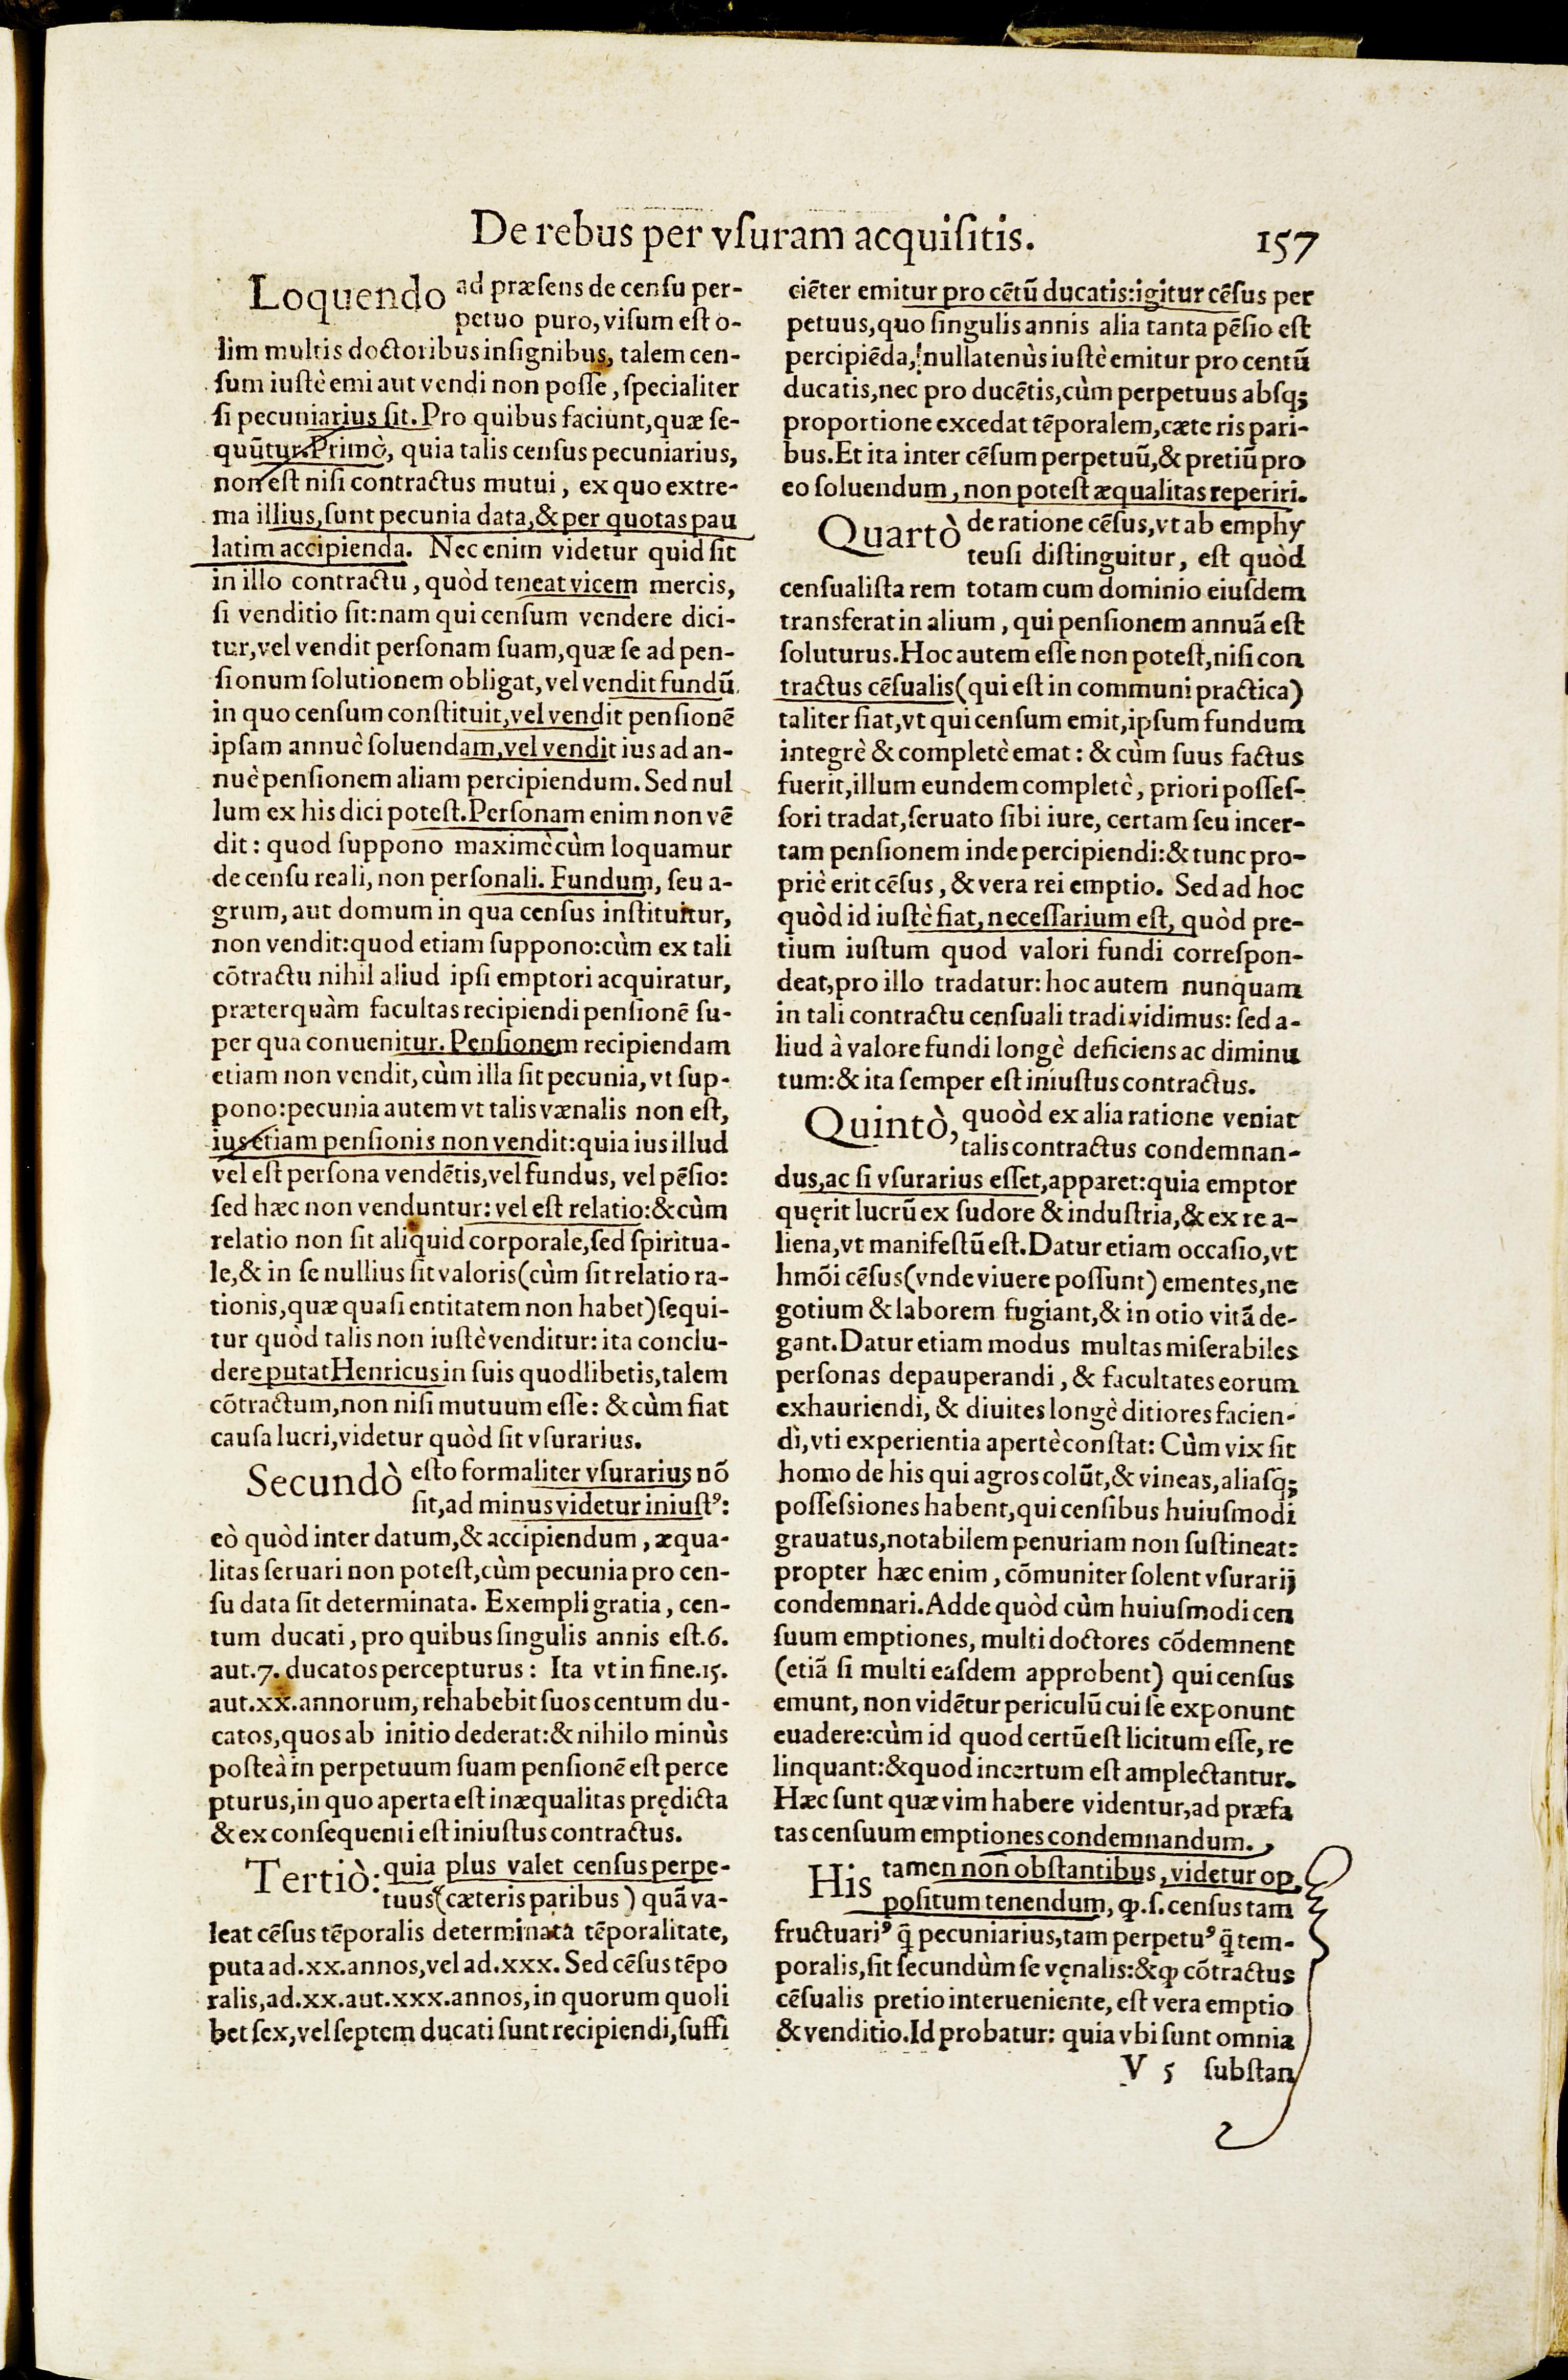 De rebus per vſuram acquiſitis.
157
Loquendo ad præſens de cenſu per-
petuo puro, viſum eſt o-
lim multis doctoribus inſignibus, talem cen-
ſum iuſtè emi aut vendi non poſſe, ſpecialiter
ſi pecuniarius ſit. Pro quibus faciunt, quæ ſe-
quūtur. Primò, quia talis cenſus pecuniarius,
non eſt niſi contractus mutui, ex quo extre-
ma illius, ſunt pecunia data, & per quotas pau
latim accipienda. Nec enim videtur quid ſit
in illo contractu, quòd teneat vicem mercis,
ſi venditio ſit: nam qui cenſum vendere dici-
tur, vel vendit perſonam ſuam, quæ ſe ad pen-
ſionum ſolutionem obligat, vel vendit fundū
in quo cenſum conſtituit, vel vendit penſionē
ipſam annuè ſoluendam, vel vendit ius ad an-
nuè penſionem aliam percipiendum. Sed nul
lum ex his dici poteſt. Perſonam enim non vē
dit: quod ſuppono maximè cùm loquamur
de cenſu reali, non perſonali. Fundum, ſeu a-
grum, aut domum in qua cenſus inſtituitur,
non vendit: quod etiam ſuppono: cùm ex tali
cōtractu nihil aliud ipſi emptori acquiratur,
præterquàm facultas recipiendi penſionē ſu-
per qua conuenitur. Penſionem recipiendam
etiam non vendit, cùm illa ſit pecunia, vt ſup-
pono: pecunia autem vt talis vænalis non eſt,
ius etiam penſionis non vendit: quia ius illud
vel eſt perſona vendētis, vel fundus, vel pēſio:
ſed hæc non venduntur: vel eſt relatio: & cùm
relatio non ſit aliquid corporale, ſed ſpiritua-
le, & in ſe nullius ſit valoris (cùm ſit relatio ra-
tionis, quæ quaſi entitatem non habet) ſequi-
tur quòd talis non iuſtè venditur: ita conclu-
dere putat Henricus in ſuis quodlibetis, talem
cōtractum, non niſi mutuum eſſe: & cùm fiat
cauſa lucri, videtur quòd ſit vſurarius.
Secundò eſto formaliter vſurarius nō
ſit, ad minus videtur iniuſtꝰ:
eò quòd inter datum, & accipiendum, æqua-
litas ſeruari non poteſt, cùm pecunia pro cen-
ſu data ſit determinata. Exempli gratia, cen-
tum ducati, pro quibus ſingulis annis eſt.6.
aut.7. ducatos percepturus: Ita vt in fine.15.
aut.xx.annorum, rehabebit ſuos centum du-
catos, quos ab initio dederat: & nihilo minùs
poſteà in perpetuum ſuam penſionē eſt perce
pturus, in quo aperta eſt inæqualitas prędicta
& ex conſequenti eſt iniuſtus contractus.
Tertiò: quia plus valet cenſus perpe-
tuus (cæteris paribus) quā va-
leat cēſus tēporalis determinata tēporalitate,
puta ad.xx.annos, vel ad.xxx. Sed cēſus tēpo
ralis, ad.xx.aut.xxx.annos, in quorum quoli
bet ſex, vel ſeptem ducati ſunt recipiendi, ſuffi
ciēter emitur pro cētū ducatis: igitur cēſus per
petuus, quo ſingulis annis alia tanta pēſio eſt
percipiēda, nullatenùs iuſtè emitur pro centū
ducatis, nec pro ducētis, cùm perpetuus abſq;
proportione excedat tēporalem, cæte ris pari-
bus. Et ita inter cēſum perpetuū, & pretiū pro
eo ſoluendum, non poteſt æqualitas reperiri.
Quartò de ratione cēſus, vt ab emphy
teuſi diſtinguitur, eſt quòd
cenſualiſta rem totam cum dominio eiuſdem
transferat in alium, qui penſionem annuā eſt
ſoluturus. Hoc autem eſſe non poteſt, niſi con
tractus cēſualis (qui eſt in communi practica)
taliter fiat, vt qui cenſum emit, ipſum fundum
integrè & completè emat: & cùm ſuus factus
fuerit, illum eundem completè, priori poſſeſ-
ſori tradat, ſeruato ſibi iure, certam ſeu incer-
tam penſionem inde percipiendi: & tunc pro-
priè erit cēſus, & vera rei emptio. Sed ad hoc
quòd id iuſtè fiat, neceſſarium eſt, quòd pre-
tium iuſtum quod valori fundi correſpon-
deat, pro illo tradatur: hoc autem nunquam
in tali contractu cenſuali tradi vidimus: ſed a-
liud à valore fundi longè deficiens ac diminu
tum: & ita ſemper eſt iniuſtus contractus.
Quintò, quoòd ex alia ratione veniat
talis contractus condemnan-
dus, ac ſi vſurarius eſſet, apparet: quia emptor
quęrit lucrū ex ſudore & induſtria, & ex re a-
liena, vt manifeſtū eſt. Datur etiam occaſio, vt
hmōi cēſus (vnde viuere poſſunt) ementes, ne
gotium & laborem fugiant, & in otio vitā de-
gant. Datur etiam modus multas miſerabiles
perſonas depauperandi, & facultates eorum
exhauriendi, & diuites longè ditiores facien-
di, vti experientia apertè conſtat: Cùm vix ſit
homo de his qui agros colūt, & vineas, aliaſq;
poſſeſsiones habent, qui cenſibus huiuſmodi
grauatus, notabilem penuriam non ſuſtineat:
propter hæc enim, cōmuniter ſolent vſurarij
condemnari. Adde quòd cùm huiuſmodi cen
ſuum emptiones, multi doctores cōdemnent
(etiā ſi multi eaſdem approbent) qui cenſus
emunt, non vidētur periculū cui ſe exponunt
euadere: cùm id quod certū eſt licitum eſſe, re
linquant: & quod incertum eſt amplectantur.
Hæc ſunt quæ vim habere videntur, ad præfa
tas cenſuum emptiones condemnandum.
His tamen non obſtantibus, videtur op
poſitum tenendum, ꝙ.ſ. cenſus tam
fructuariꝰ q̄ pecuniarius, tam perpetuꝰ q̄ tem-
poralis, ſit ſecundùm ſe vęnalis: & ꝙ cōtractus
cēſualis pretio interueniente, eſt vera emptio
& venditio. Id probatur: quia vbi ſunt omnia
V 5 ſubſtan